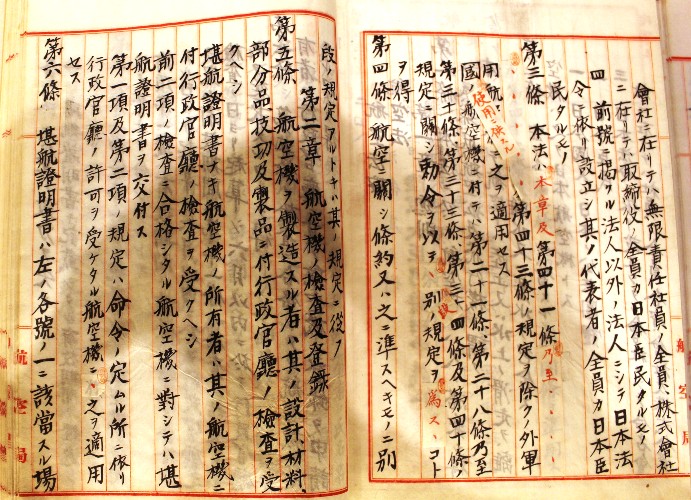 會社ニ在リテハ無限責任社員ノ全員、株式會社
ニ在リテハ取締役ノ全員カ日本臣民タルモノ
四 前號ニ掲クル法人以外ノ法人ニシテ日本法
令ニ依リ設立シ其ノ代表者ノ全員カ日本臣
民タルモノ
第三條 本法ハ本章及第四十一條乃至
第四十三條ノ規定ヲ除クノ外軍
用航
使用ニ供スル
之ヲ適用セス
國ノ航空機ニ付テハ第二十一條第二十八條乃至
第三十條第三十三條第三十四條及第四十條ノ
規定ニ關シ勅令ヲ以テ別ノ規定ヲ爲スコト
ヲ得
第四條 航空ニ關シ條約又ハ之ニ準スヘキモノニ別
段ノ規定アルトキハ其ノ規定ニ從フ
第二章 航空機ノ檢査及登錄
第五條 航空機ヲ製造スル者ハ其ノ設計、材料、
部分品、技巧及製品ニ付行政官廳ノ檢査ヲ受
クヘシ
堪航證明書ナキ航空機ノ所有者ハ其ノ航空機ニ
付行政官廳ノ檢査ヲ受クヘシ
前二項ノ檢査ニ合格シタル航空機ニ對シテハ堪
航證明書ヲ交付ス
第一項及第二項ノ規定ハ命令ノ定ムル所ニ依リ
行政官廳ノ許可ヲ受ケタル航空機ニハ之ヲ適用
セス
第六條 堪航證明書ハ左ノ各號ノ一ニ該當スル場
航空局